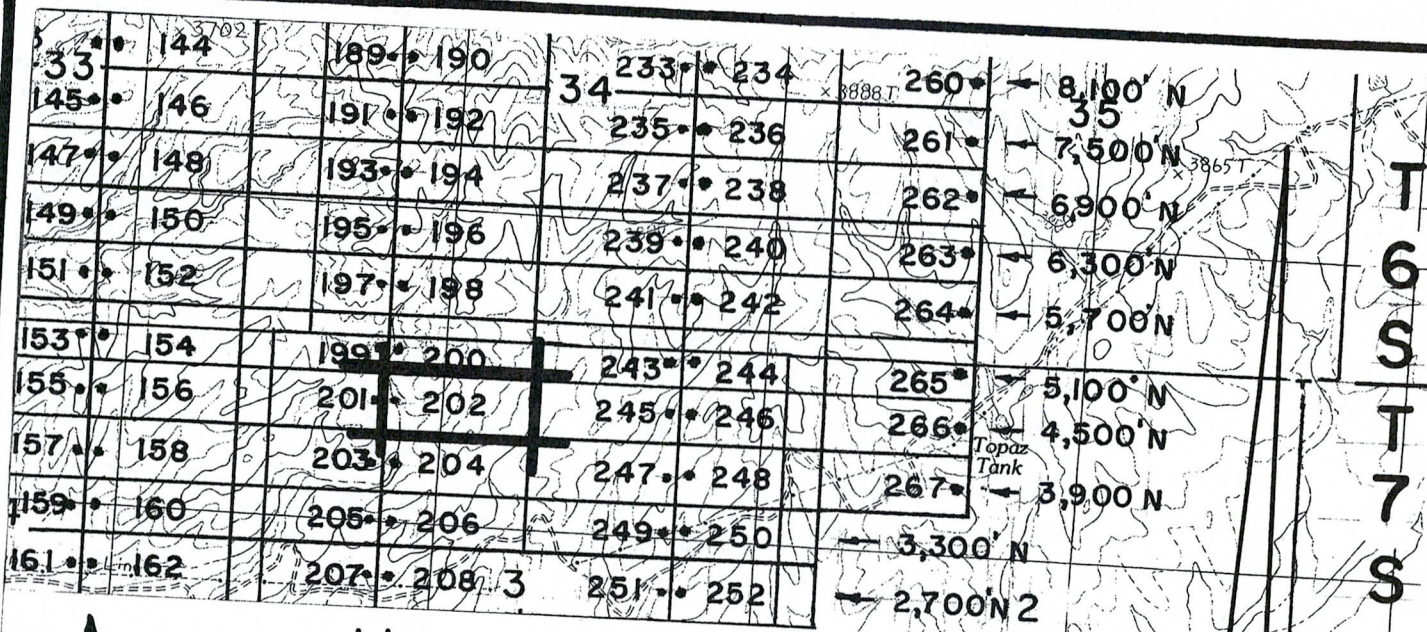 3 144 × 3702 189 190 233 234 260 8,100' N
33 34 × 3888T 35
145 146 191 192 235 236 261 7,500'N
147 148 193 194 237 238 262 6,900' N × 3865T
149 150 195 196 239 240 263 6,300'N
151 152 197 198 241 242 264 5,700'N
153 154 199 200 243 244 265 5,100' N
155 156 201 202 245 246 266 4,500'N
Topaz
Tank
157 158 203 204 247 248 267 3,900 N
159 160 205 206 249 250 3,300' N
161 162 207 208 3 251 252 2,700'N 2
T
6
S
T
7
S